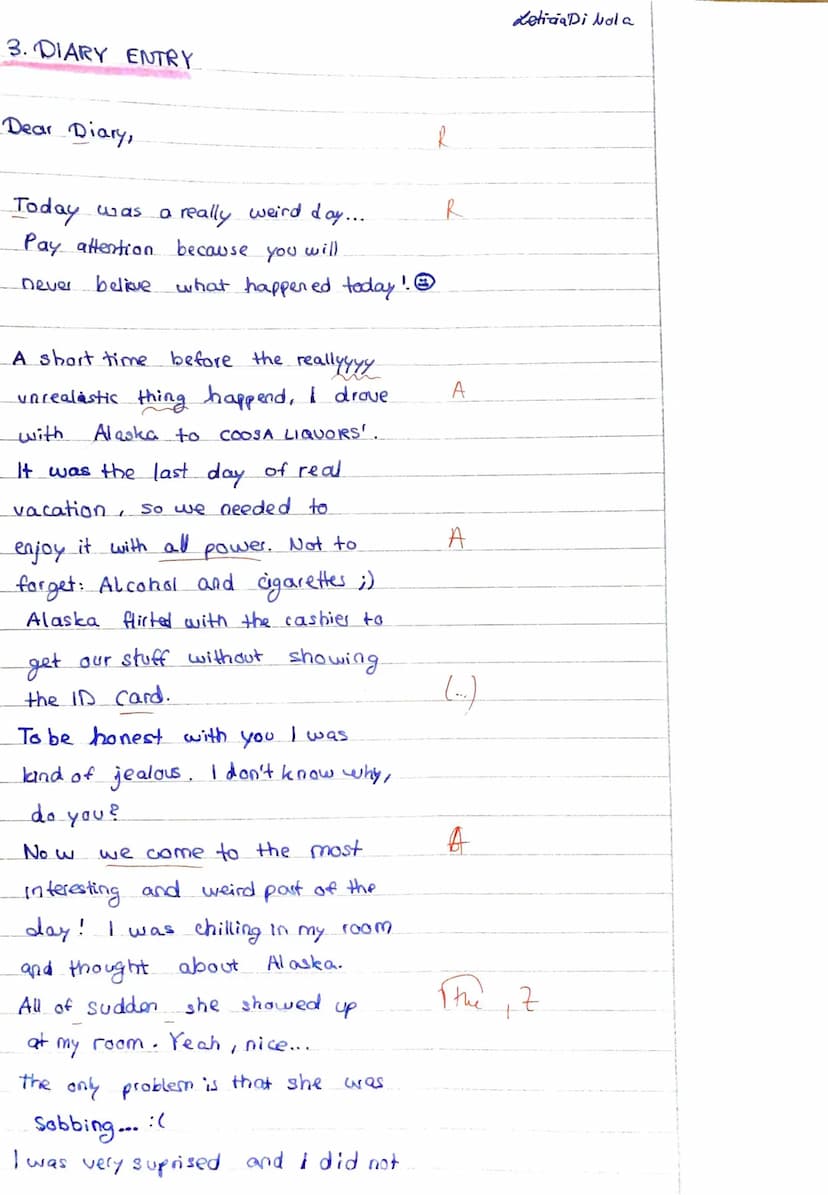 Leticia Di Nola
3. DIARY ENTRY
Dear Diary,
R
Today was a really weird day...
R
Pay attention because you will
never belive what happened today!
A short time before the reallyyyyy
unrealistic thing happend, I drove
A
with Alaska to COOSA LIQUORS'.
It was the last day of real
vacation, so we needed to
enjoy it with all power. Not to
A
forget: Alcohol and cigarettes ;)
Alaska flirted with the cashier to
get our stuff without showing
the ID card.
(...)
To be honest with you I was
kind of jealous. I don't know why,
do you?
Now we come to the most
A
interesting and weird part of the
day! I was chilling in my room
and thought about Alaska.
All of sudden she showed up
the, Z
at my room. Yeah, nice...
The only problem is that she was
sobbing... :(
I was very suprised and I did not